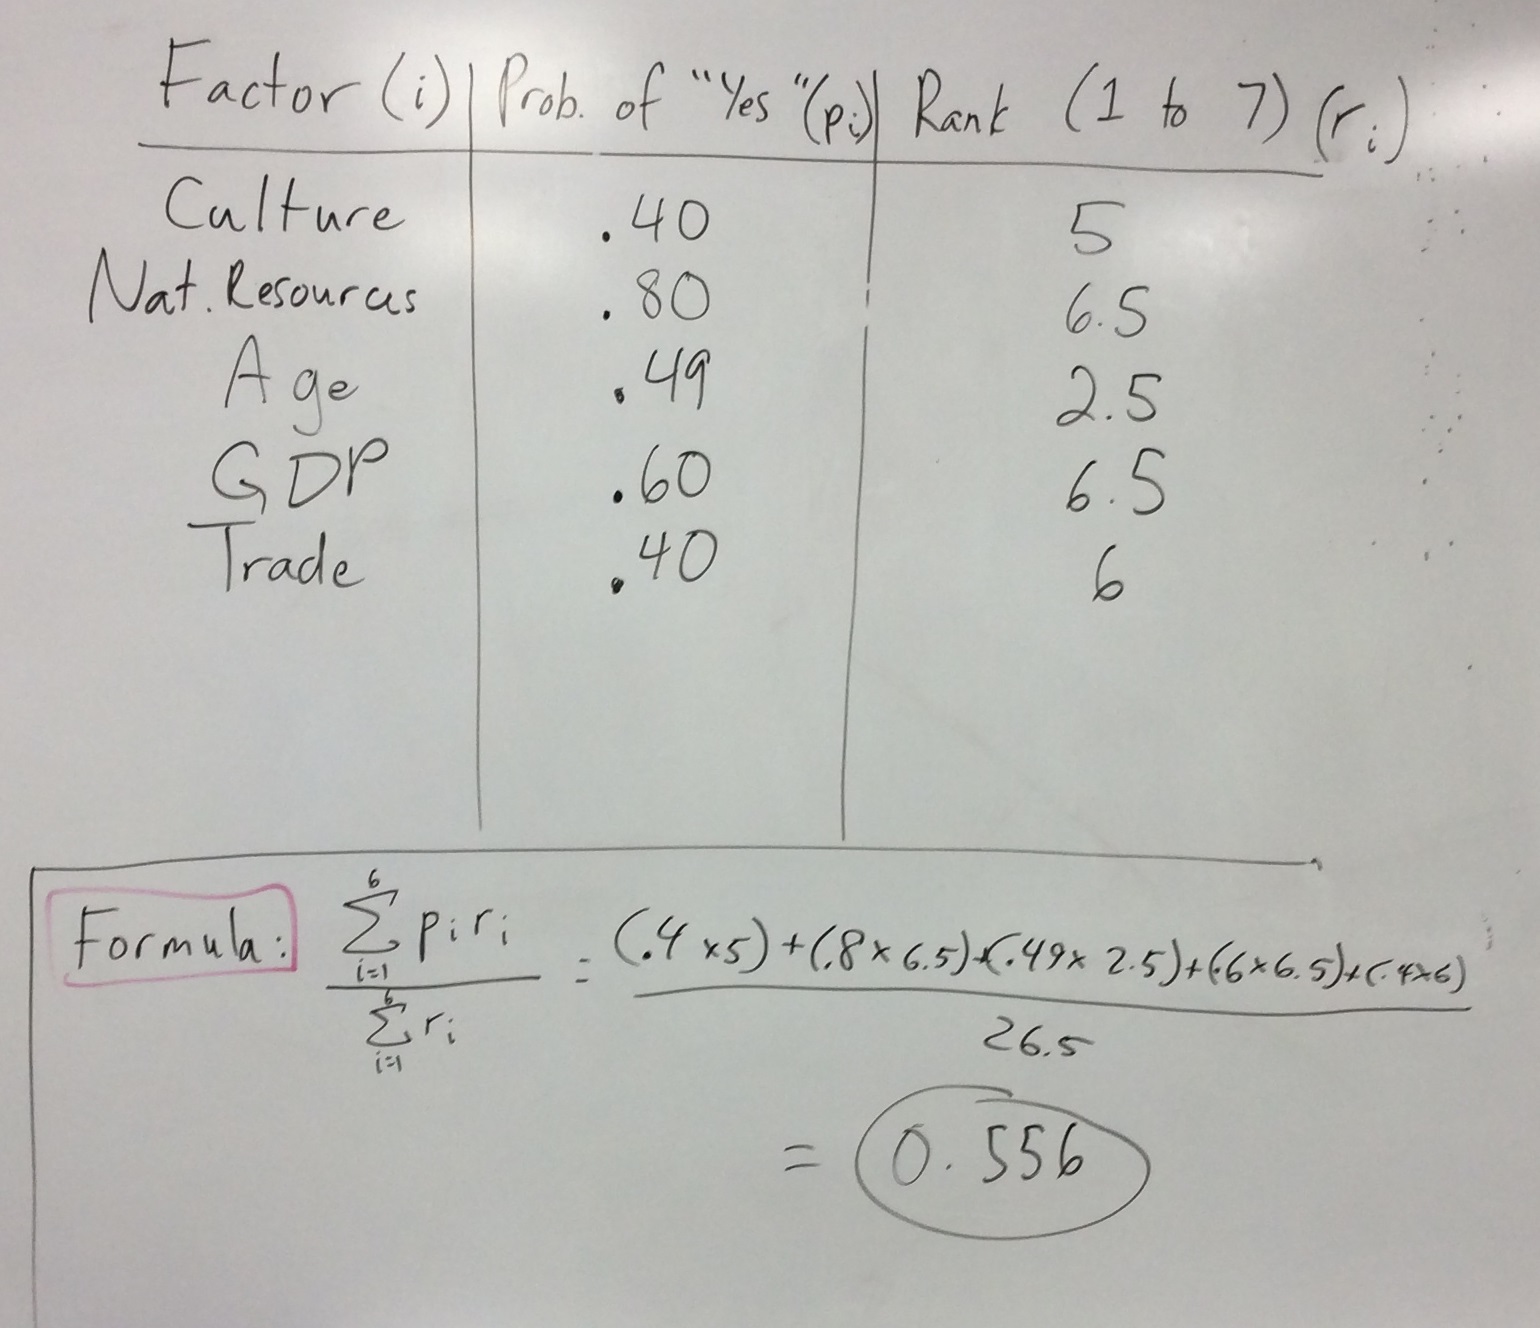 Factor (i) | Prob. of "Yes" (pi) | Rank (1 to 7) (ri)
Culture | .40 | 5
Nat. Resources | .80 | 6.5
Age | .49 | 2.5
GDP | .60 | 6.5
Trade | .40 | 6
Formula: 6∑i=1 piri / 6∑i=1 ri = (.4 × 5) + (.8 × 6.5) + (.49 × 2.5) + (.6 × 6.5) + (.4 × 6) / 26.5
= 0.556